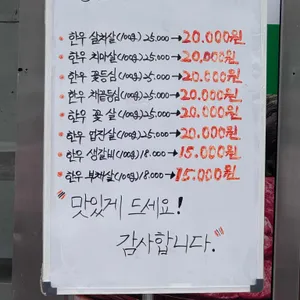 * 한우 살치살(100g) 25.000→20.000원
* 한우 치마살(100g) 25.000→20,000원
* 한우 꽃등심(100g) 25.000→20.000원
* 한우 채끝등심(100g) 25.000→20.000원
* 한우 꽃 살(100g) 25.000→20.000원
* 한우 업진살(100g) 25.000→20.000원
* 한우 생갈비(100g) 18.000→15.000원
* 한우 부채살(100g) 18.000→15.000원
맛있게 드세요!
감사합니다.